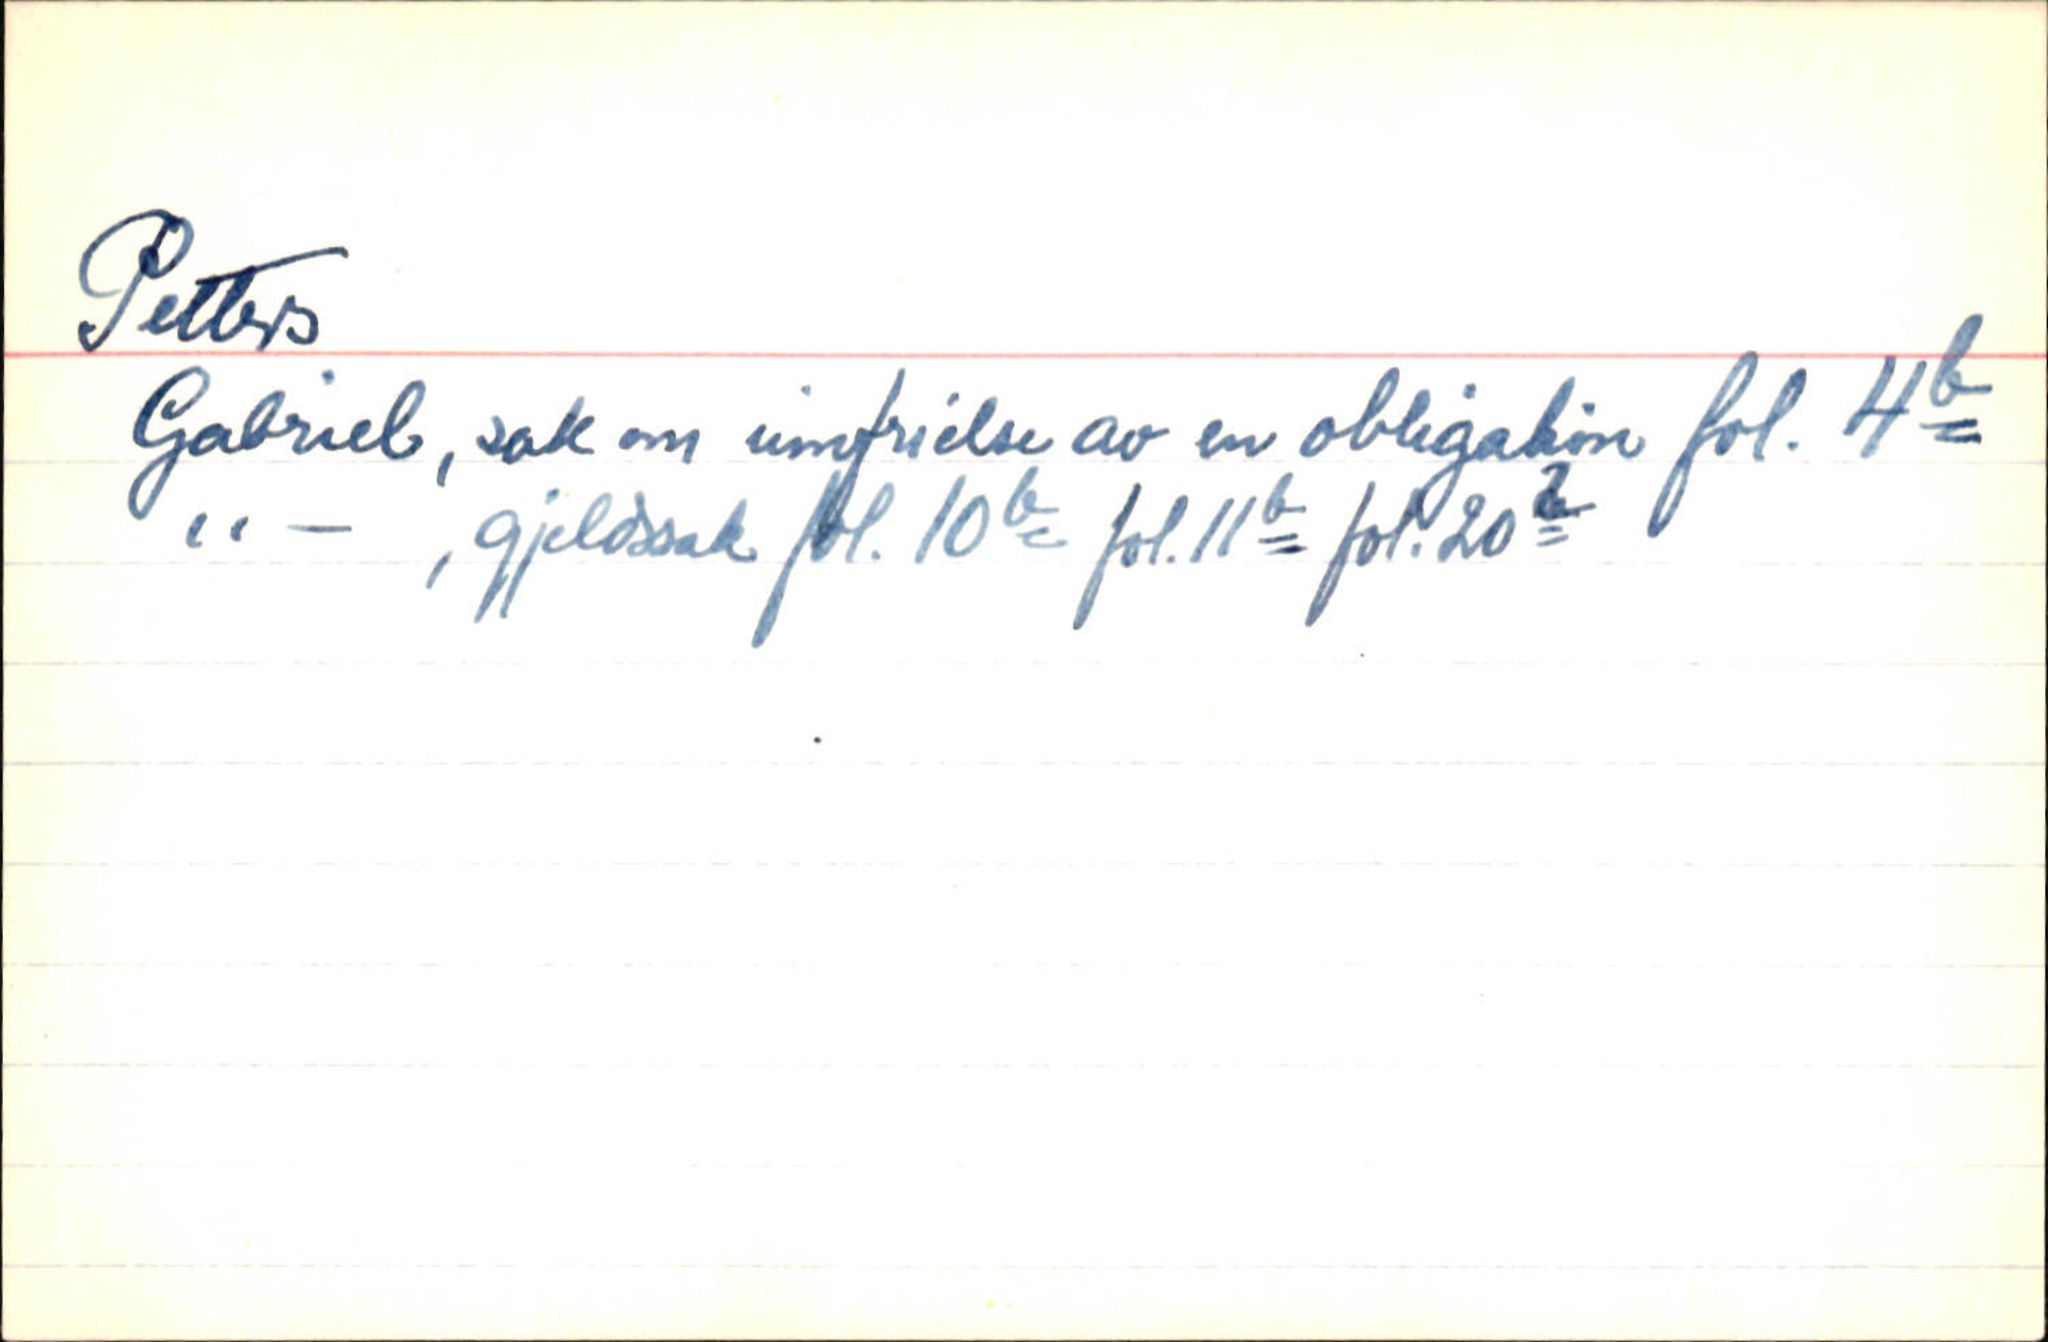 Petters
Gabriel, sak om innfrielse av en obligation fol. 4b
" — , gjeldssak fol. 10b fol. 11b fol. 20b